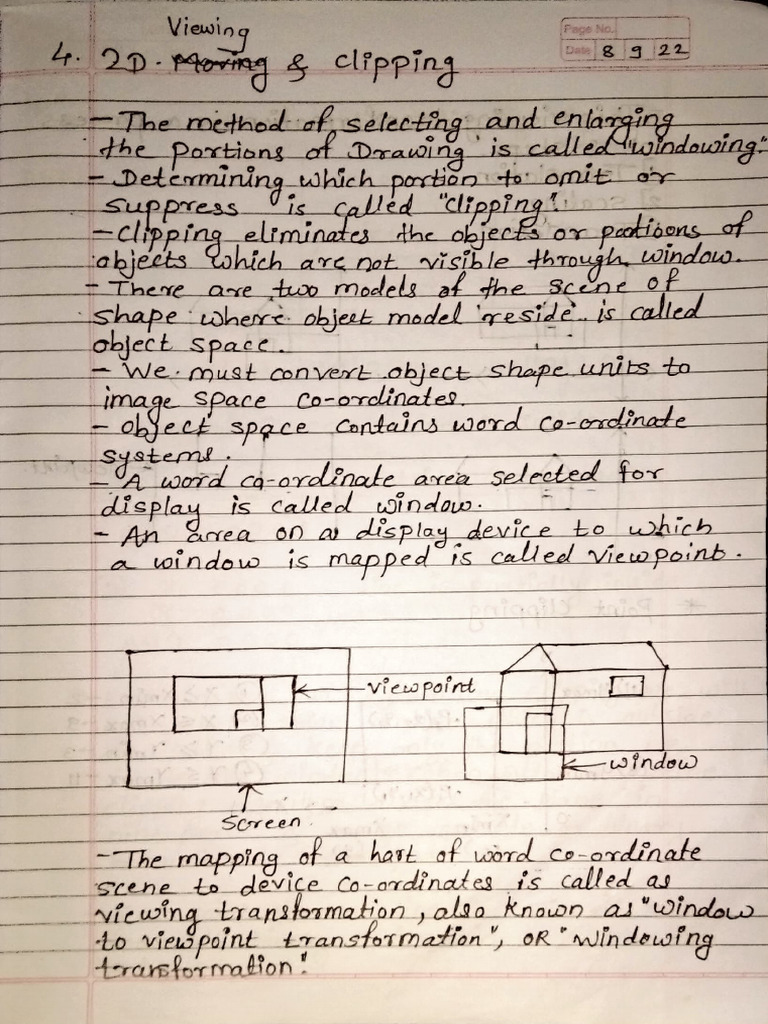 Viewing
4. 2D. Moving & clipping
Page No.
Date 8 9 22
- The method of selecting and enlarging
the portions of Drawing is called "windowing".
- Determining which portion to omit or
suppress is called "clipping".
- Clipping eliminates the objects or pootioons of
objects which are not visible through window.
- There are two models of the scene of
shape where object model reside is called
object space.
- We must convert object shape units to
image space co-ordinates.
- Object space contains word co-ordinate
systems.
- A word co-ordinate area selected for
display is called window.
- An area on a display device to which
a window is mapped is called viewpoint.
viewpoint
window
Screen
- The mapping of a hart of word co-ordinate
scene to device co-ordinates is called as
viewing transformation, also known as "window
to viewpoint transformation", OR "windowing
transformation".